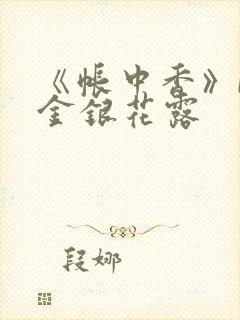 《帐中香》
金银花露
段娜